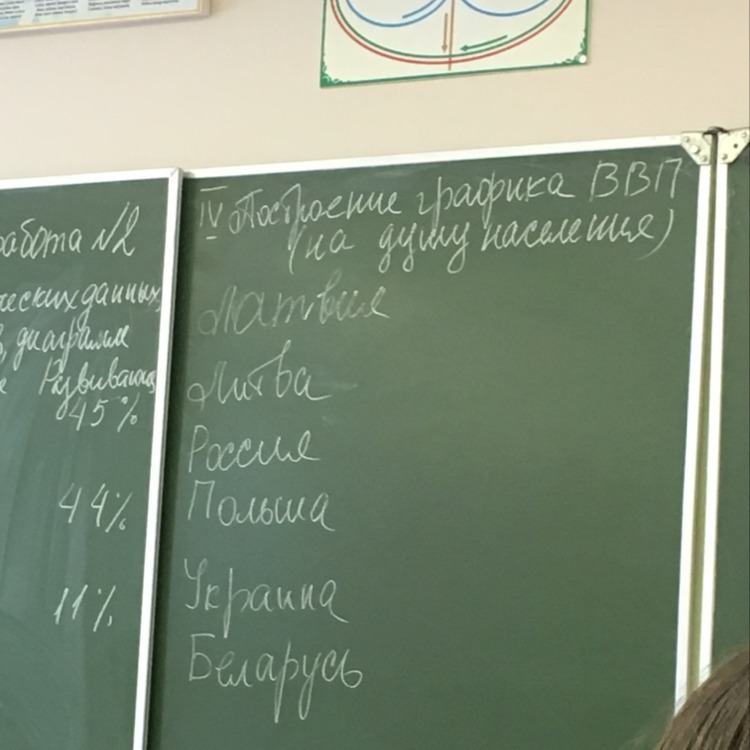 работа №2
ческих данных,
в диаграмме
Развивающ
45%
44%
11%
IV Построение графика ВВП
(на душу населения)
Латвия
Литва
Россия
Польша
Украина
Беларусь